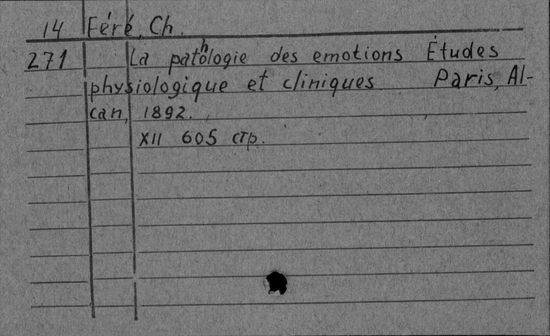 14 Féré, Ch.
271 La pathologie des emotions Études
physiologique et cliniques Paris, Al-
can, 1892.
XII 605 стр.